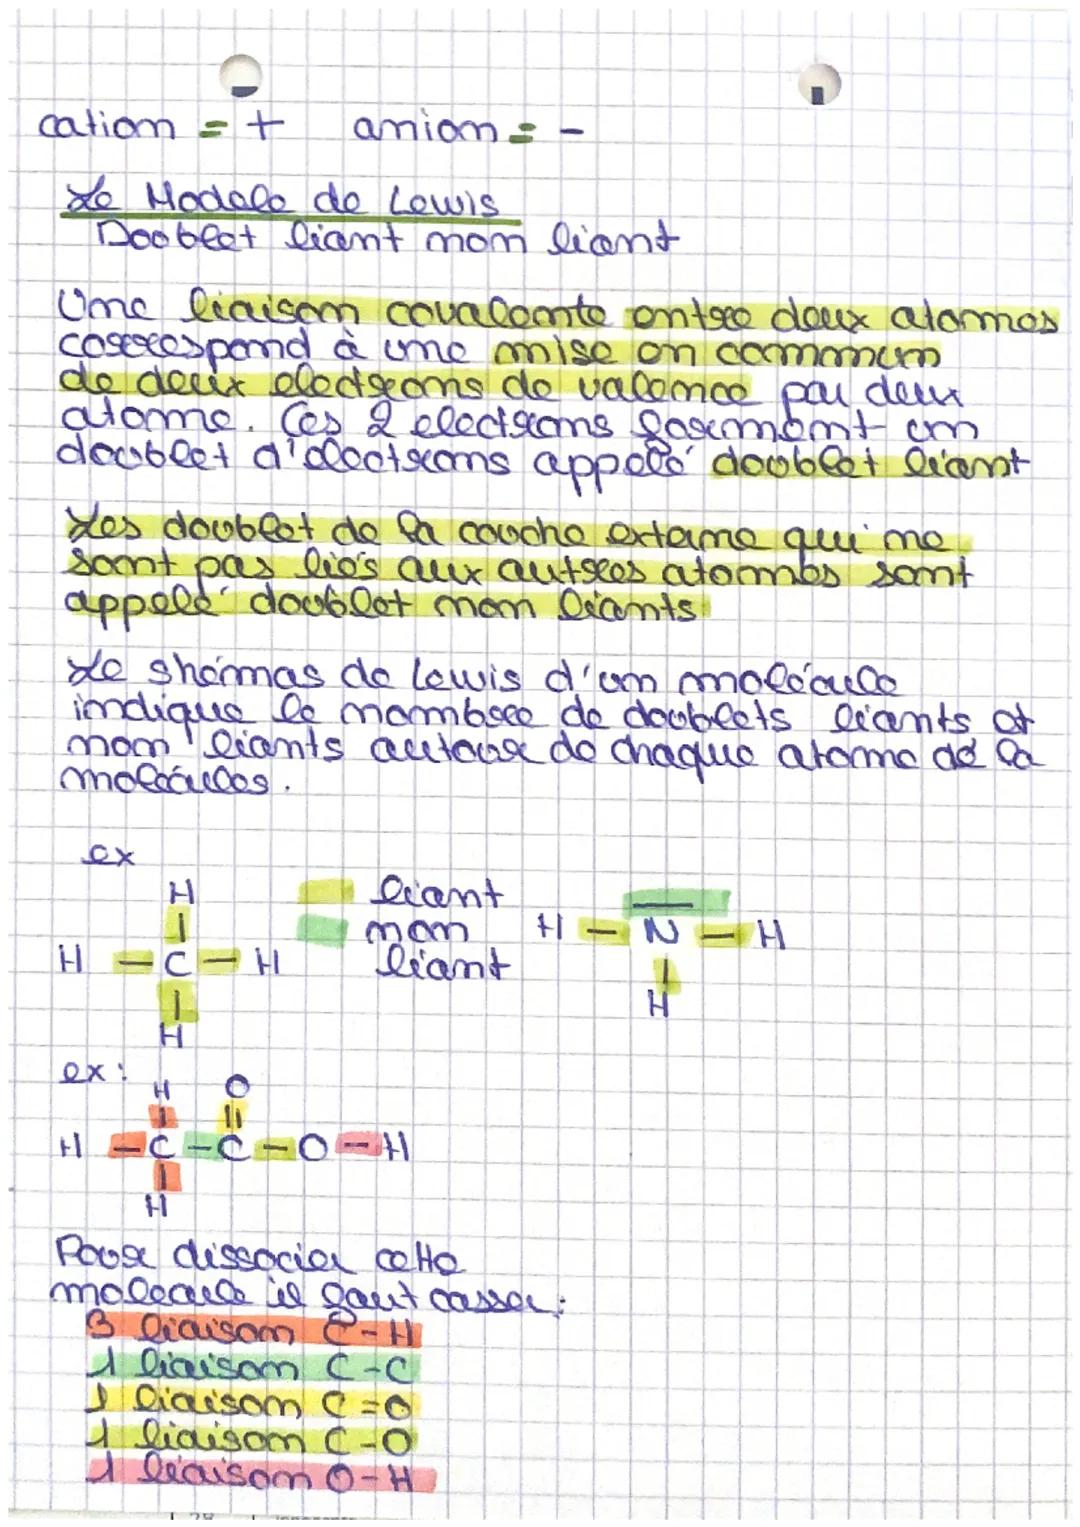 cation = + anion = -
Le Modele de Lewis
Dooblet liant non liant
Une liaison covalente entre deux atomes
correspond à une mise en commun
de deux electrons de valence par deux
atome. Ces 2 electrons forment un
doublet d'electrons appelé dooblet liant
Les doublet de la couche externe qui ne
sont pas liés aux autres atomes sont
appelé doublet non liants
Le shémas de Lewis d'un molécule
indique le nombre de doublets liants et
non liants autour de chaque atome de la
molécules.
ex
H
H - C - H
H
liant
non
liant
H - N - H
H
ex :
H O
H - C - C - O - H
H
Pour dissocier cette
molecule il faut casser :
3 liaison C-H
1 liaison C-C
1 liaison C=O
1 liaison C-O
1 liaison O-H